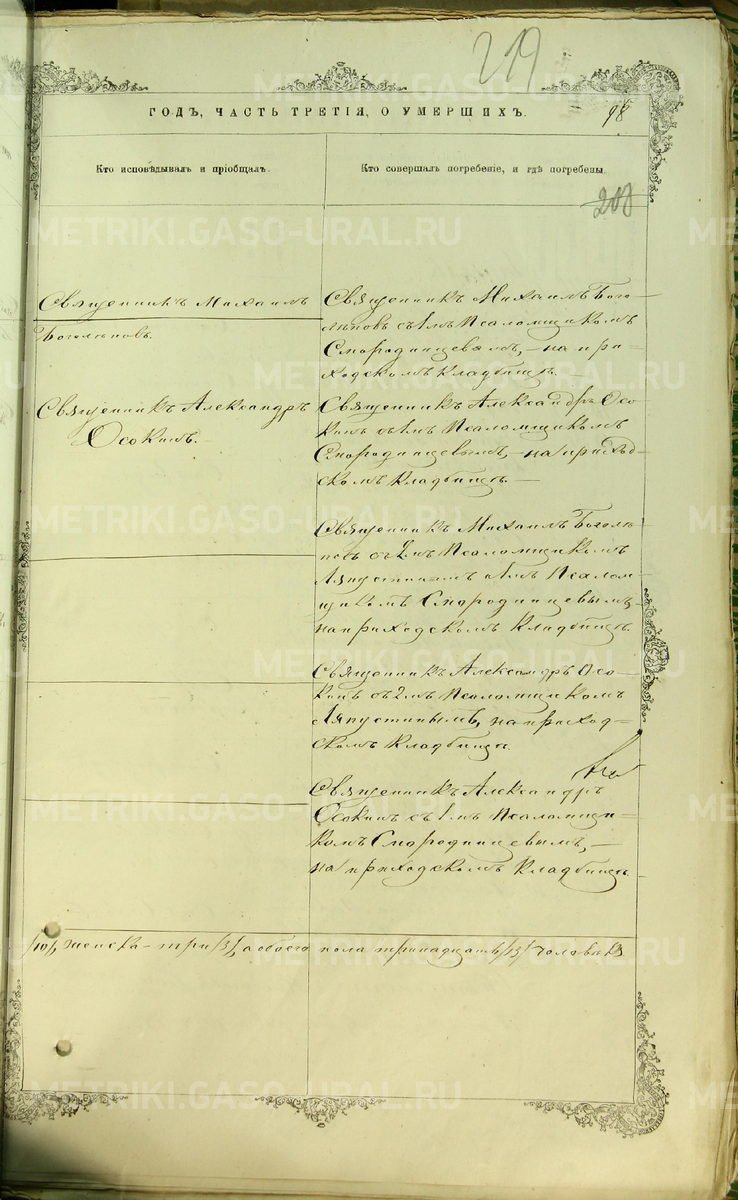 219
ГОДЪ, ЧАСТЬ ТРЕТІЯ, О УМЕРШИХЪ.
98
Кто исповѣдывалъ и пріобщалъ.
Кто совершалъ погребеніе, и гдѣ погребены.
208
Священникъ Михаилъ
Боголѣповъ.
Священникъ Михаилъ Бого-
лѣповъ съ 1мъ Псаломщикомъ
Смородинцевымъ, – на при-
ходскомъ кладбищѣ. –
Священникъ Александръ
Осокинъ. –
Священникъ Александръ Осо-
кинъ съ 1мъ Псаломщикомъ
Смородинцевымъ, – на приход-
скомъ кладбищѣ. –
Священникъ Михаилъ Боголѣ-
повъ съ 2мъ Псаломщикомъ
Ляпустинымъ 1мъ Псалом-
щикомъ Смородинцевымъ,
на приходскомъ кладбищѣ.
Священникъ Александръ Осо-
кинъ съ 2мъ Псаломщикомъ
Ляпустинымъ, на приход-
скомъ кладбищѣ.
Священникъ Александръ
Осокинъ съ 1мъ Псаломщи-
комъ Смородинцевымъ, –
на приходскомъ кладбищѣ.
/10/, женска – три /3/, а обоего пола тринадцать /13/ человѣкъ
METRIKI.GASO-URAL.RU